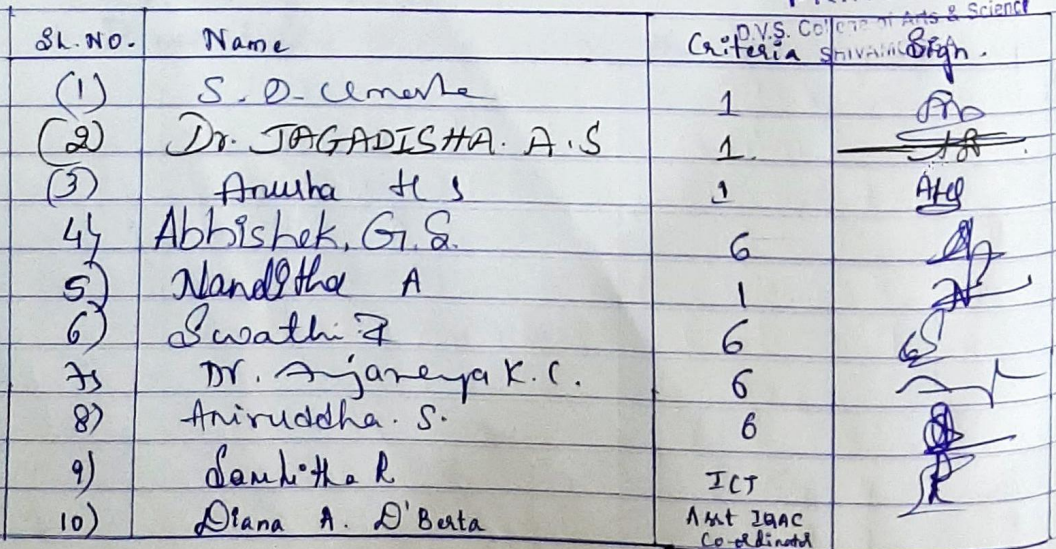 D.V.S. College of Arts & Science
SHIVAMOGGA
Sl. No. Name Criteria Sign.
(1) S. D. Umesha 1
(2) Dr. JAGADISHA. A.S 1.
(3) Anusha H S 1
4) Abhishek, G.S. 6
5) Nanditha A 1
6) Swathi 6
7) Dr. Anjaneya K.C. 6
8) Aniruddha. S. 6
9) R ICT
10) Diana A. D'Berta Asst IQAC
Co-ordinator